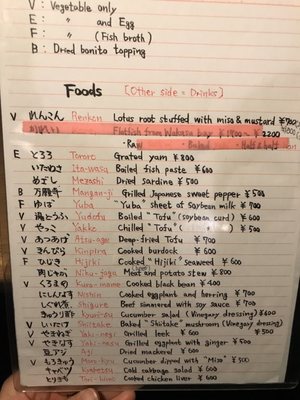 V : Vegetable only
E : 〃 and Egg
F : 〃 (Fish broth)
B : Dried bonito topping
Foods [Other side = Drinks]
V れんこん Renkon Lotus root stuffed with miso & mustard ¥700
Flatfish from Wakasa bay ¥1800~ ¥2200
・Raw ・Baked ・Half & half
E とろろ Tororo Grated yam ¥800
いたわさ Ita-wasa Boiled fish paste ¥600
めざし Mezashi Dried sardine ¥500
B 万願寺 Mangan-ji Grilled Japanese sweet pepper ¥500
F ゆば Yuba "Yuba" sheet of soybean milk ¥700
V 湯とうふ Yudofu Boiled "Tofu" (soybean curd) ¥600
V やっこ Yakko Chilled "Tofu" ( 〃 ) ¥500
V あつあげ Atsu-age Deep-fried Tofu ¥700
V きんぴら Kinpira Cooked burdock ¥600
F ひじき Hijiki Cooked "Hijiki" seaweed ¥600
肉じゃが Niku-jaga Meat and potato stew ¥800
V くろまめ Kuro-mame Cooked black bean ¥400
にしんなす Nishin Cooked eggplant and herring ¥700
しぐれ煮 Shigure Beef simmered with soy sauce ¥700
きゅうり酢 Kyuri-su Cucumber salad (Vinegary dressing) ¥600
V しいたけ Shiitake Baked "Shiitake" mushroom (Vinegary dressing)
V やきねぎ Yaki-negi Grilled leek ¥500
V やきなす Yaki-nasu Grilled eggplant with ginger ¥500
豆アジ Aji Dried mackerel ¥600
V もろきゅう Moro-kyu Cucumber dipped with "Miso" ¥500
キャベツ Kyabetsu Cold cabbage salad ¥600
とりきも Tori-kimo Cooked chicken liver ¥600